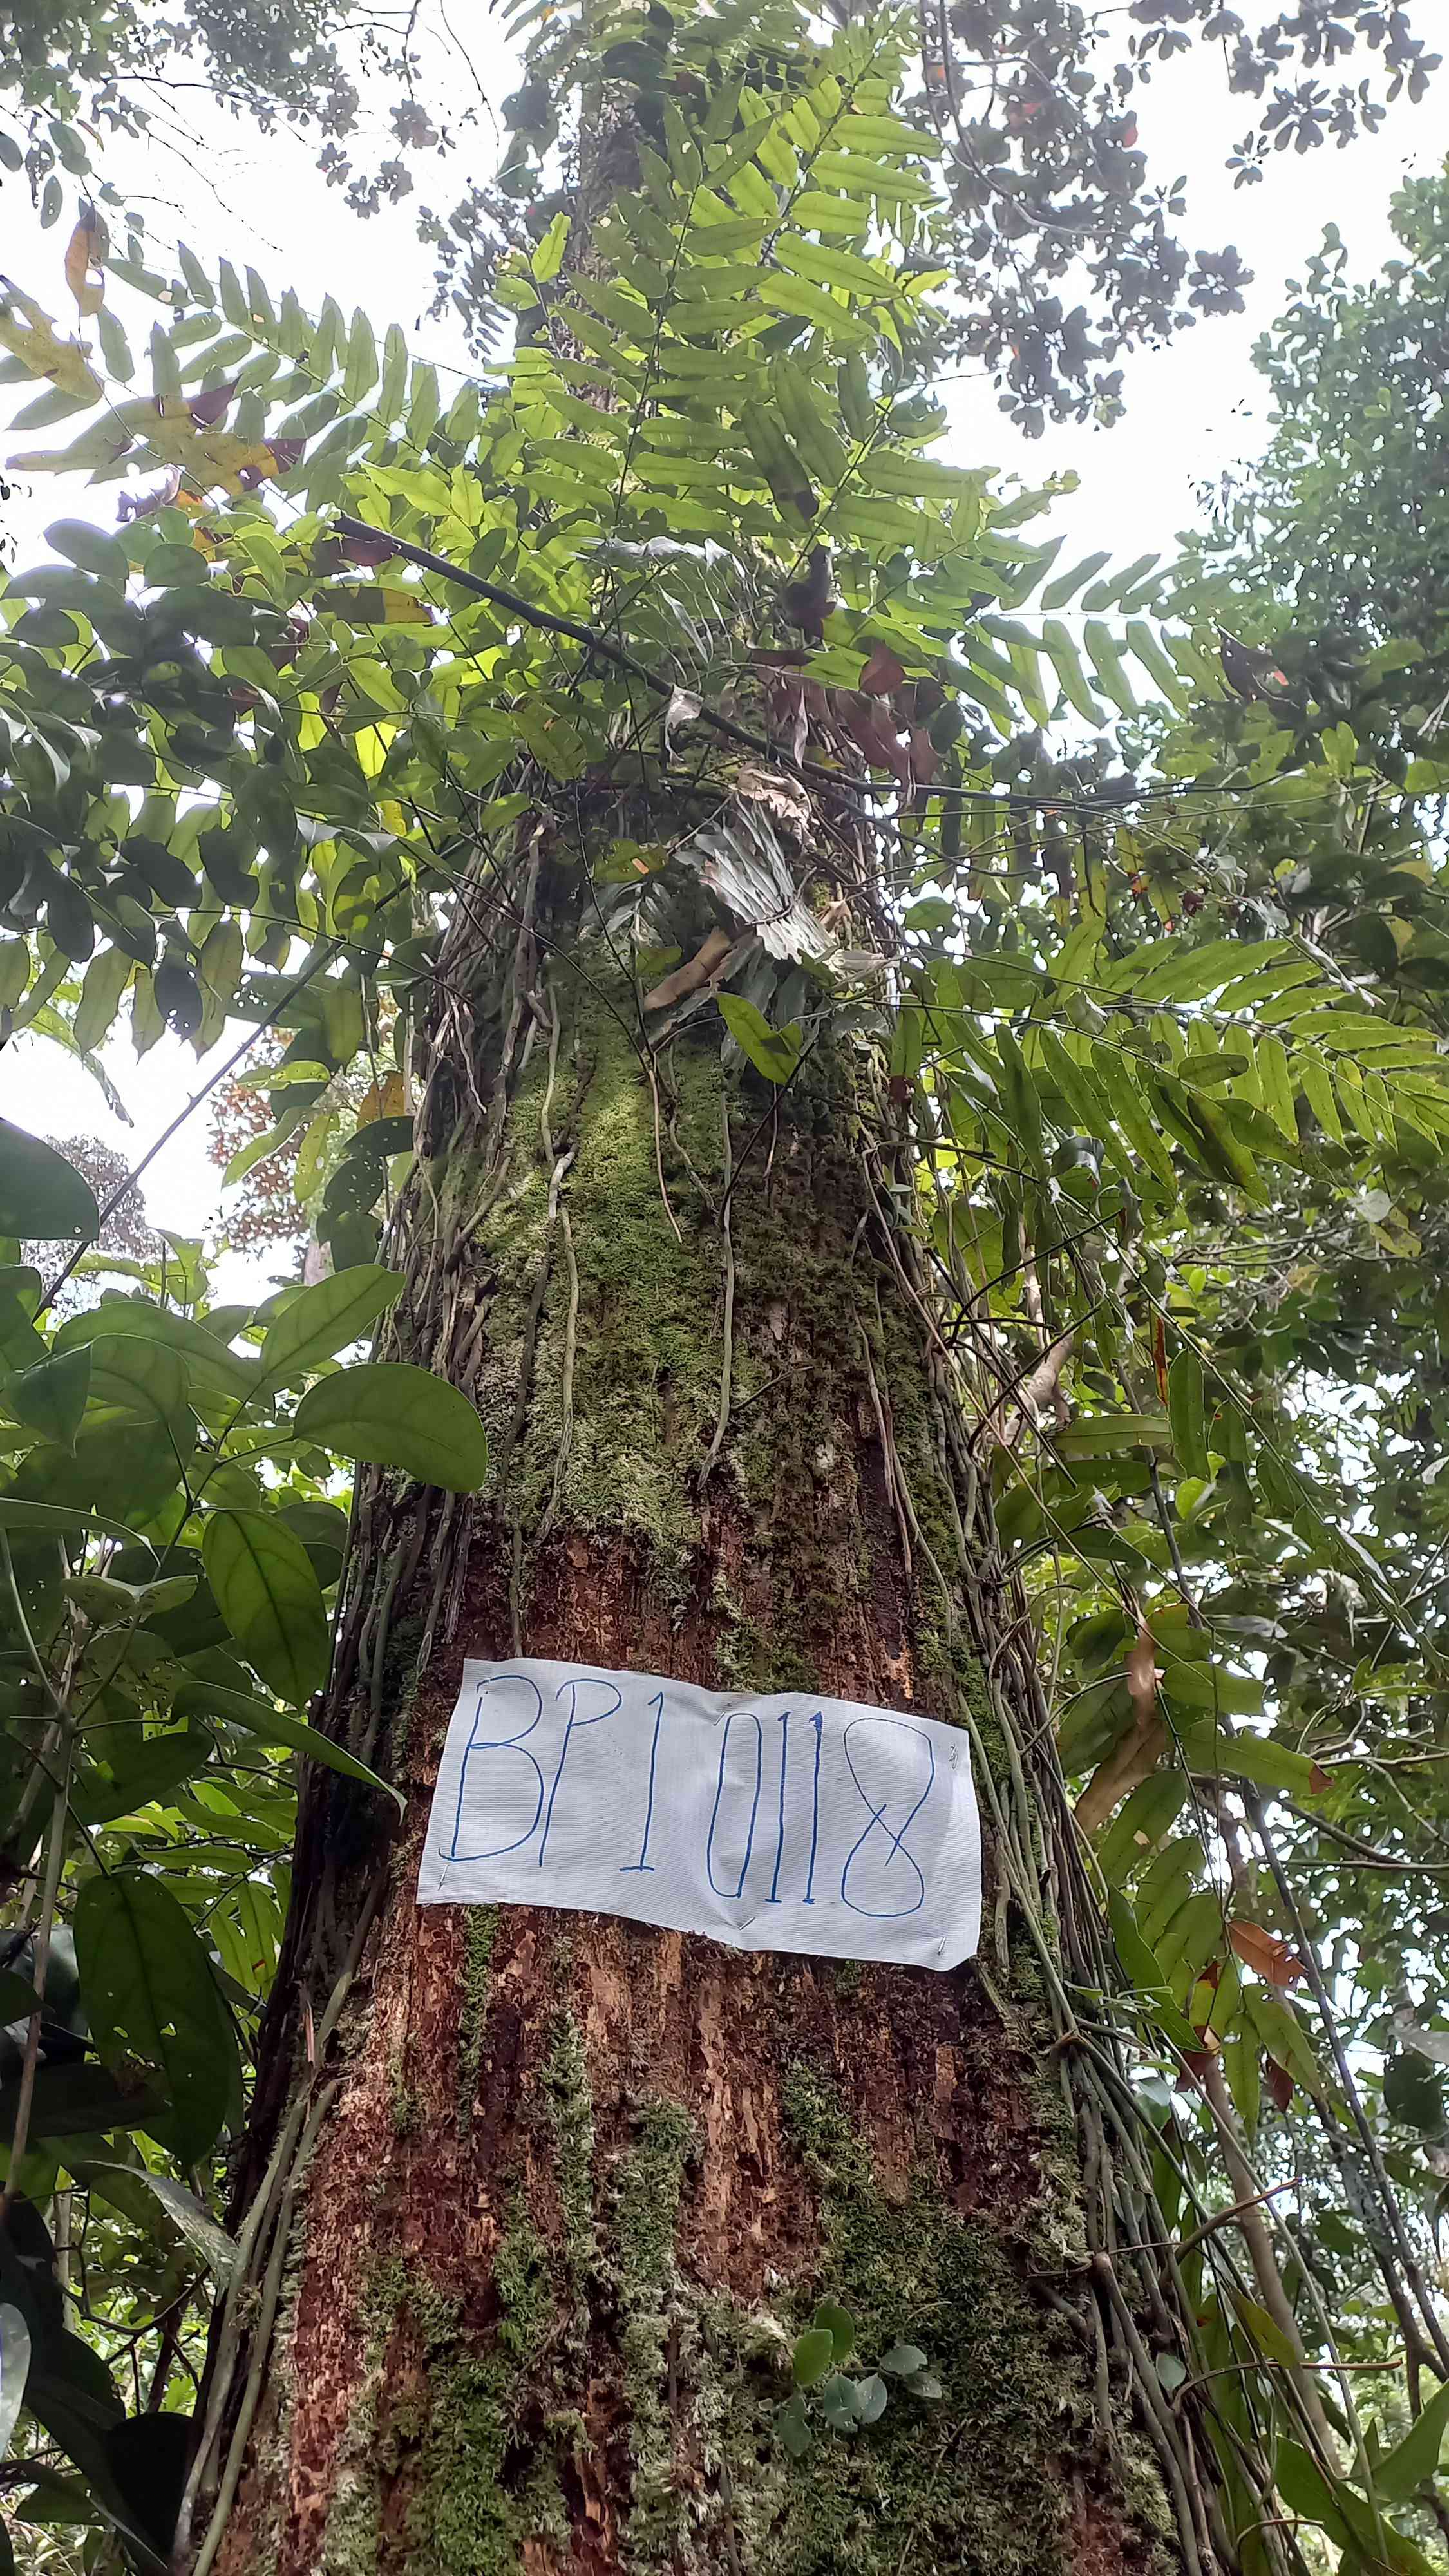 BP1 0118